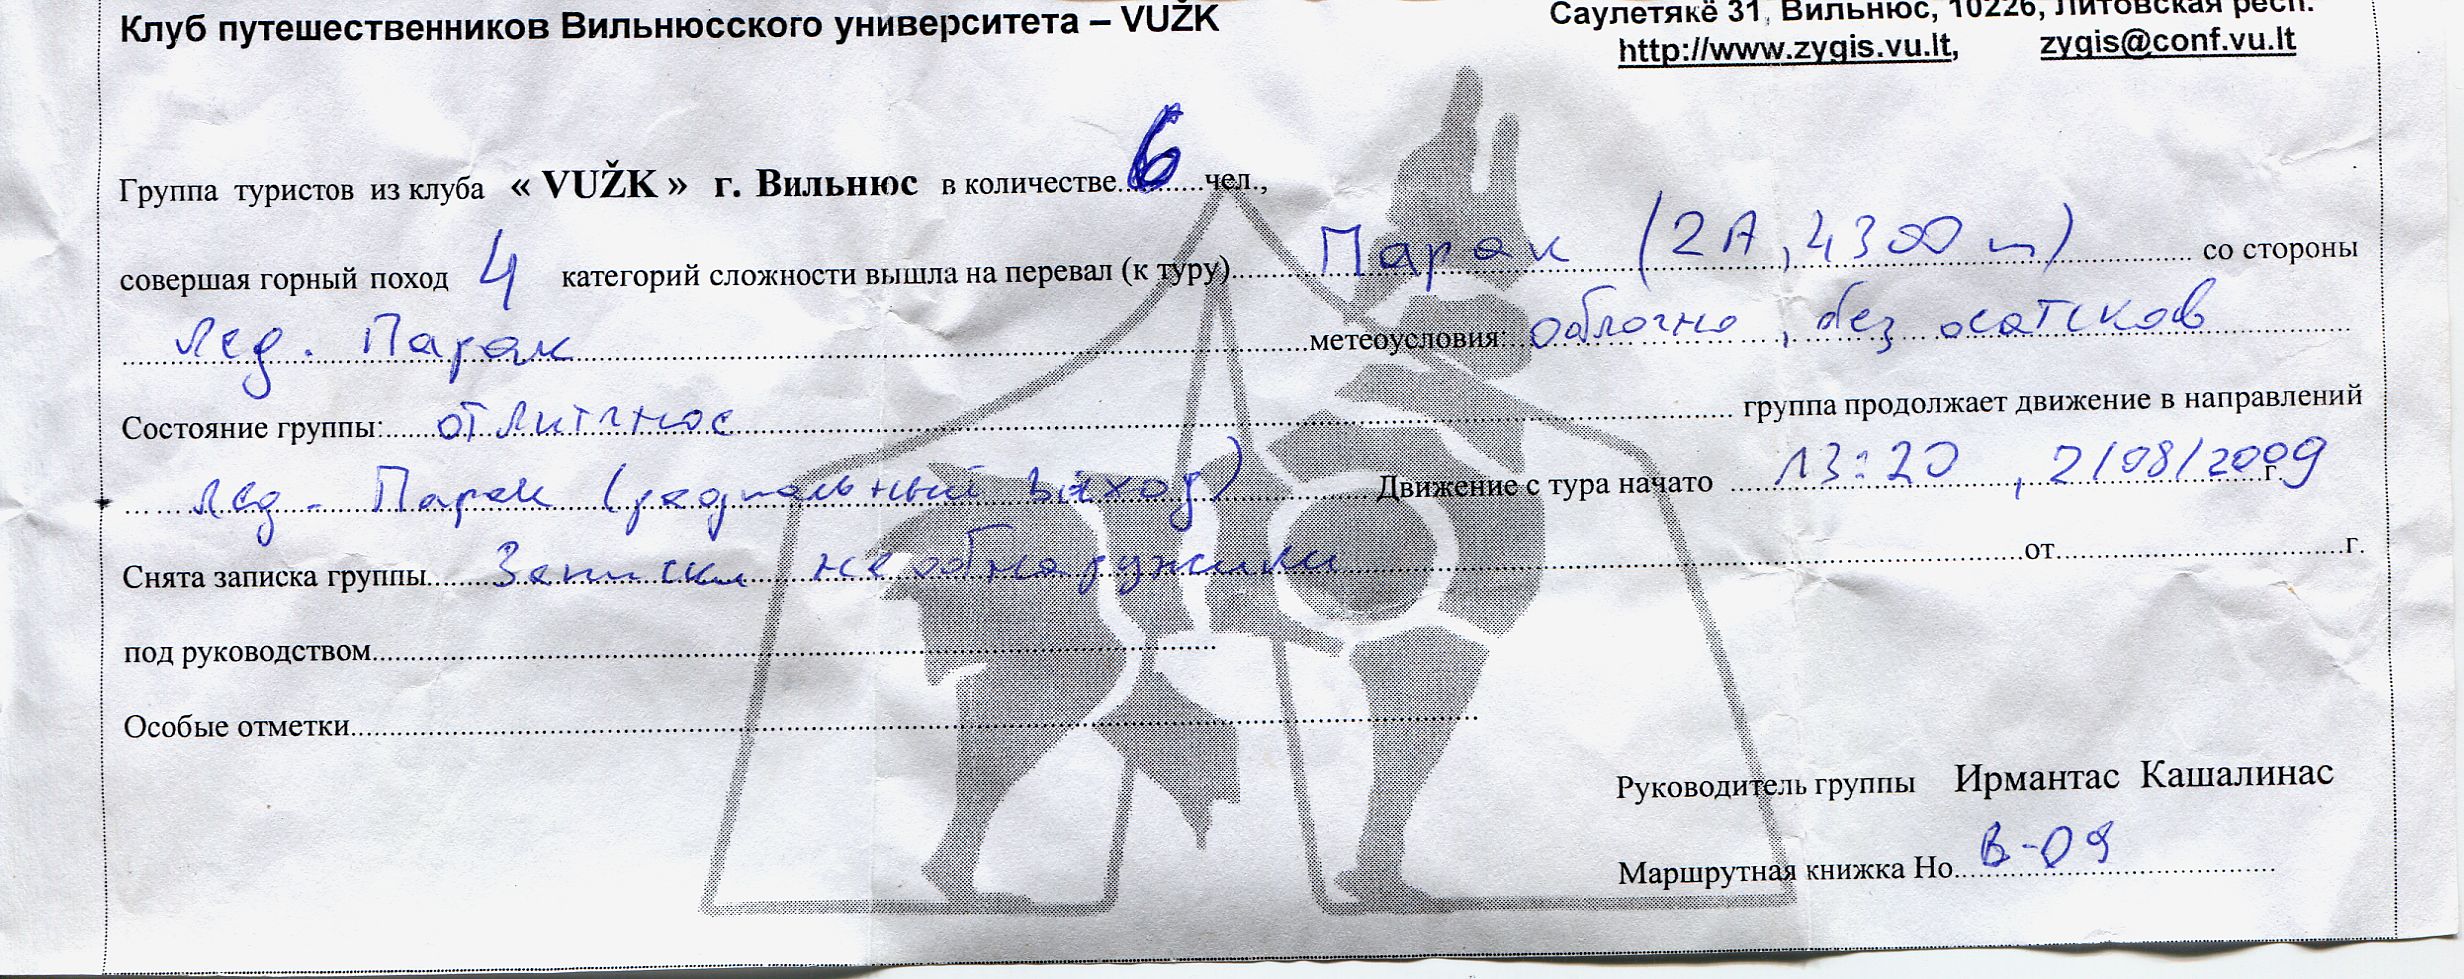 Клуб путешественников Вильнюсского университета – VUŽK
Саулетякё 31, Вильнюс, 10226, Литовская респ.
http://www.zygis.vu.lt, zygis@conf.vu.lt
Группа туристов из клуба « VUŽK » г. Вильнюс в количестве 6 чел.,
совершая горный поход 4 категорий сложности вышла на перевал (к туру) Парак (2А, 4300 m) со стороны
лед. Парак метеоусловия: облочно, без осатсков
Состояние группы: отлитчное группа продолжает движение в направлений
лед. Парак (радиальный выход) Движение с тура начато 13:20, 2/08/2009 г.
Снята записка группы Записки не обнаружили от г.
под руководством
Особые отметки
Руководитель группы Ирмантас Кашалинас
Маршрутная книжка Но. В-09